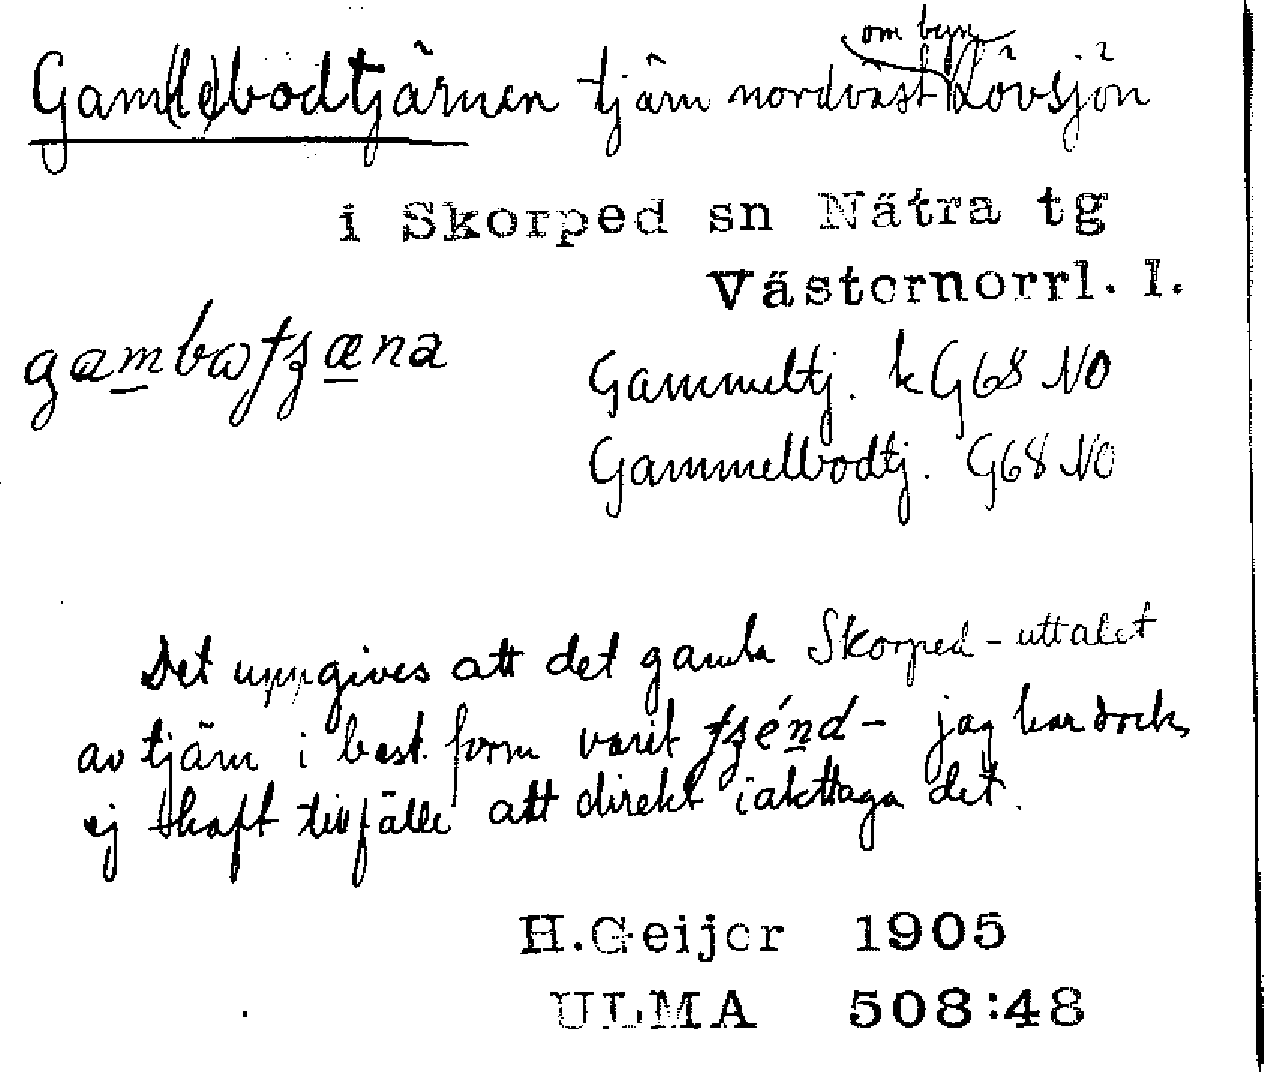 Gam(le)bodtjärnen tjärn nordväst om byn Lövsjön
i Skorped sn Nätra tg
Västernorrl. l.
Gammeltj. kG68 NO
Gammelbodtj. G68 NO
Det uppgives att det gamla Skorped-uttalet
av tjärn i best. form varit - jag har dock
ej haft tillfälle att direkt iakttaga det.
H.Geijer 1905
ULMA 508:48